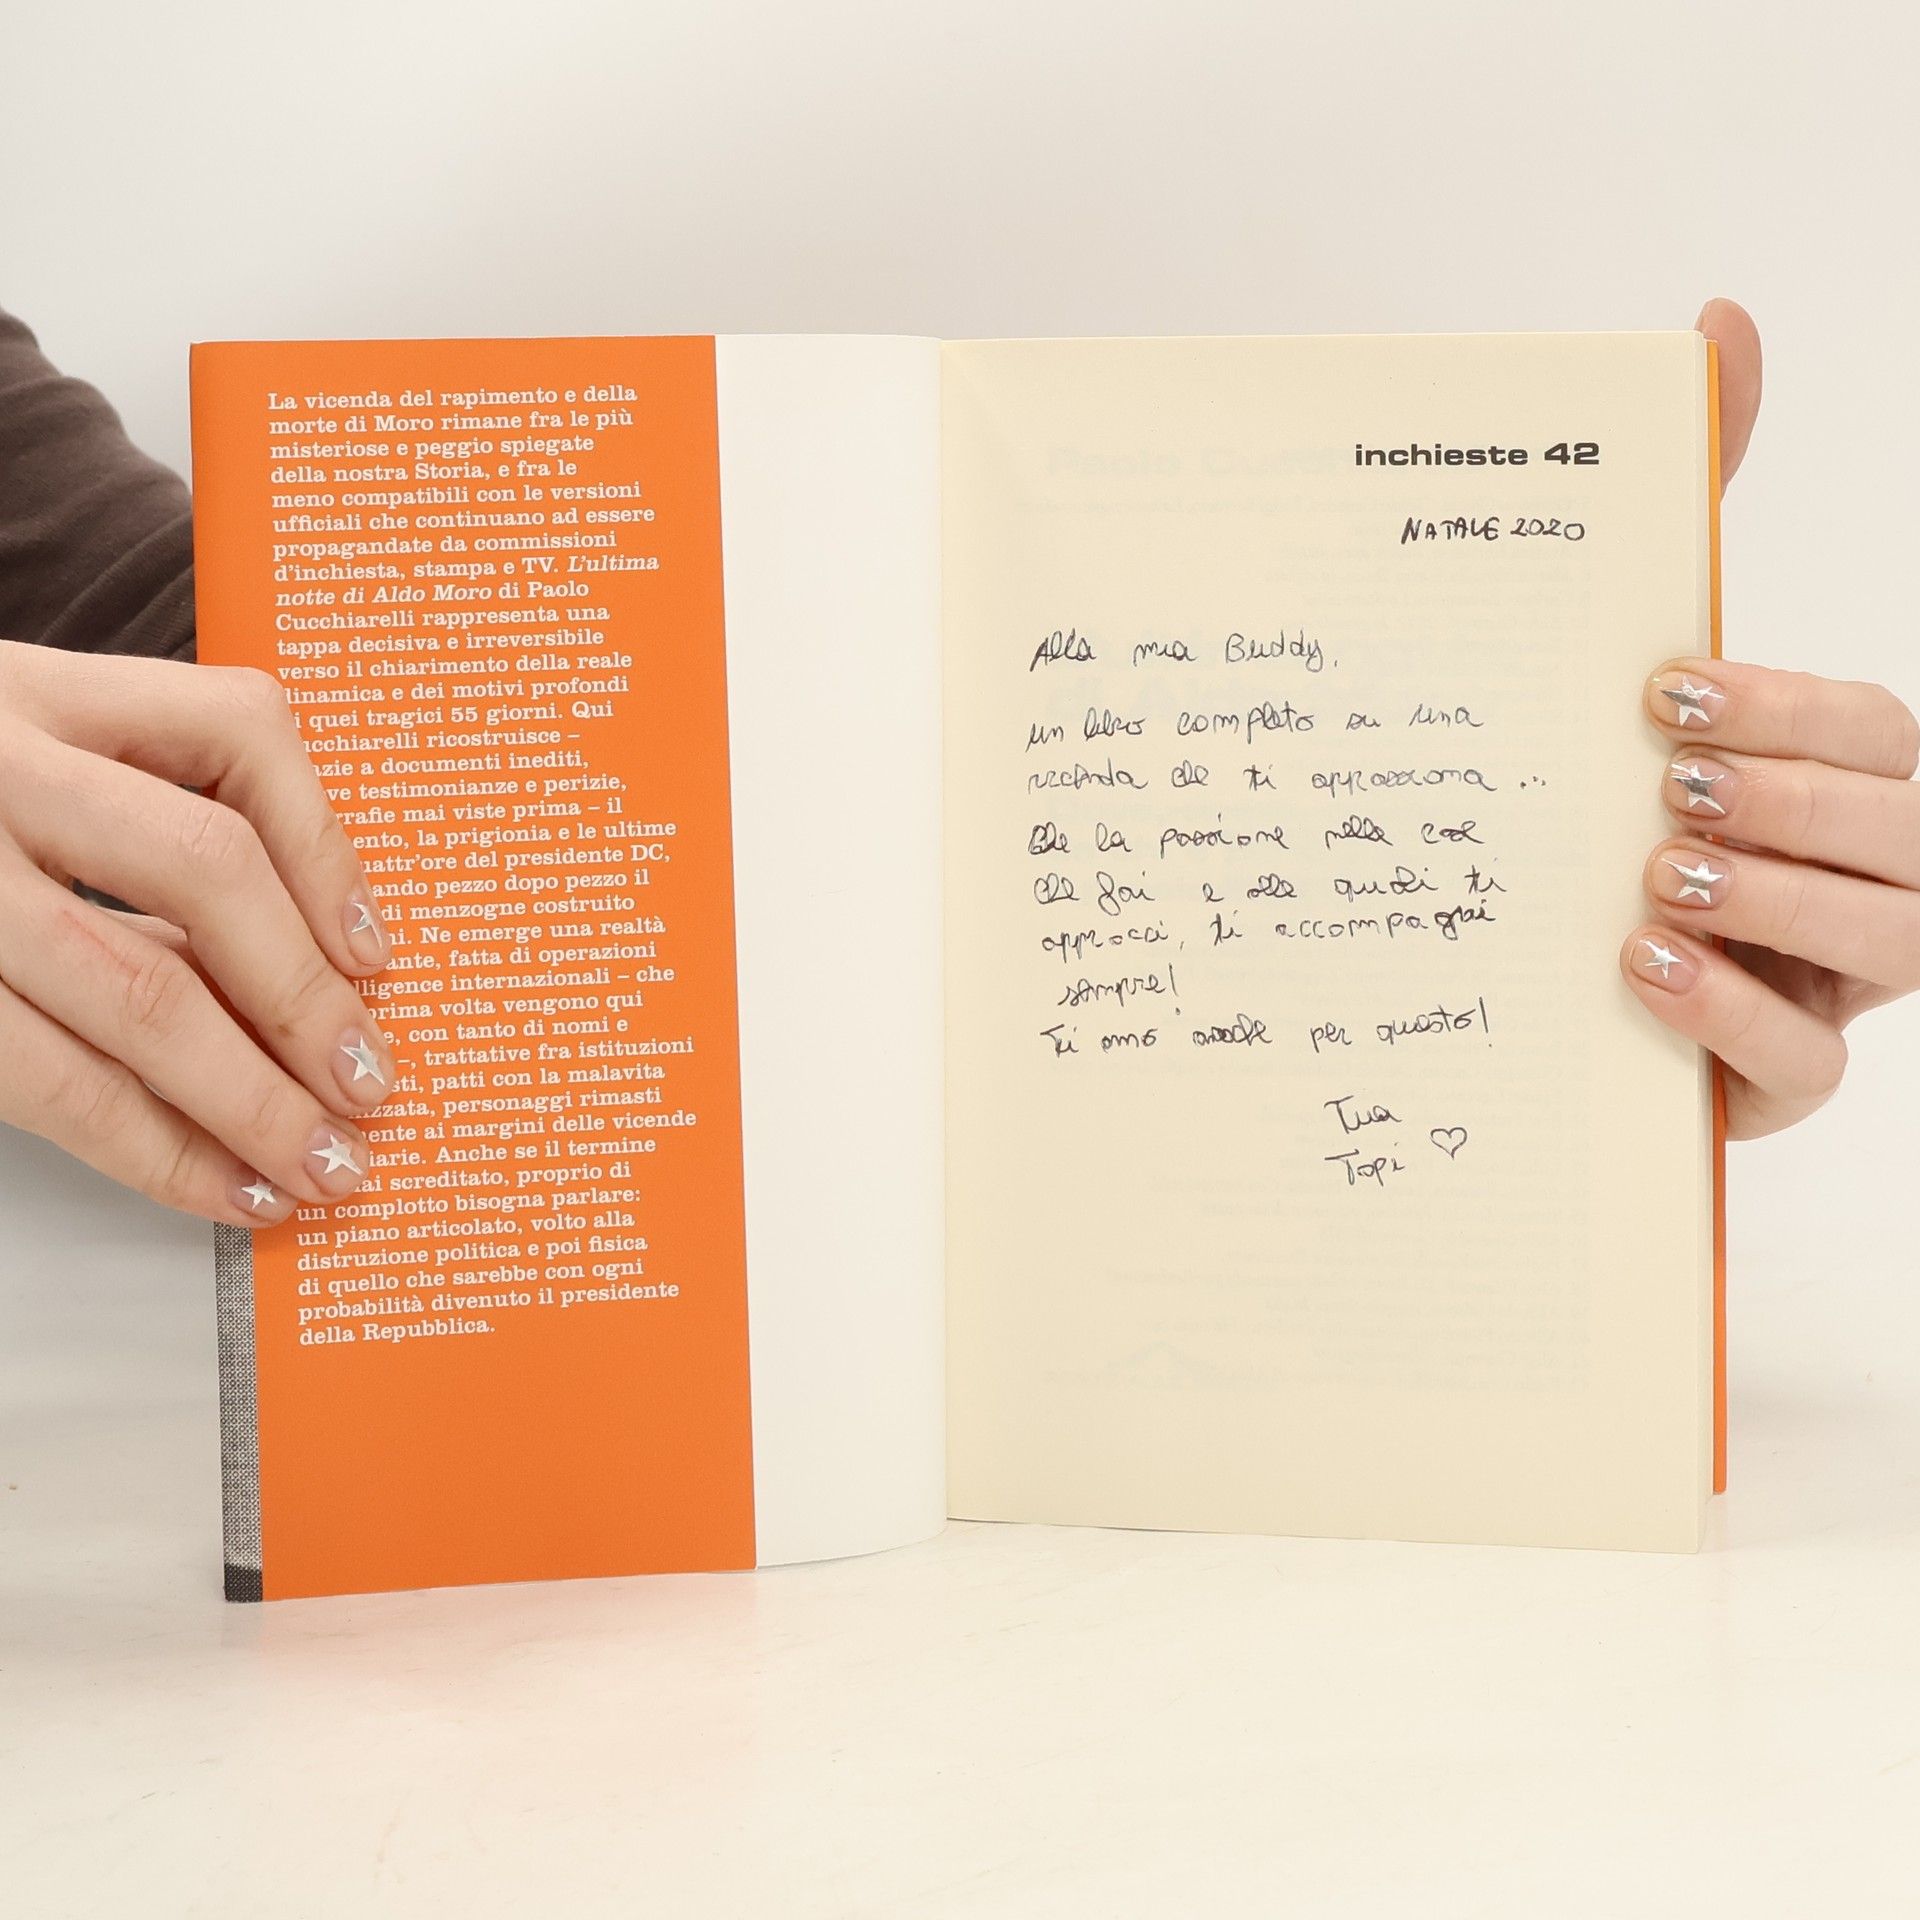 La vicenda del rapimento e della
morte di Moro rimane fra le più
misteriose e peggio spiegate
della nostra Storia, e fra le
meno compatibili con le versioni
ufficiali che continuano ad essere
propagandate da commissioni
d'inchiesta, stampa e TV. L'ultima
notte di Aldo Moro di Paolo
Cucchiarelli rappresenta una
tappa decisiva e irreversibile
verso il chiarimento della reale
dinamica e dei motivi profondi
i quei tragici 55 giorni. Qui
ucchiarelli ricostruisce –
azie a documenti inediti,
ve testimonianze e perizie,
rafie mai viste prima – il
ento, la prigionia e le ultime
uattr'ore del presidente DC,
ando pezzo dopo pezzo il
di menzogne costruito
ni. Ne emerge una realtà
ante, fatta di operazioni
lligence internazionali – che
prima volta vengono qui
e, con tanto di nomi e
–, trattative fra istituzioni
sti, patti con la malavita
izzata, personaggi rimasti
ente ai margini delle vicende
iarie. Anche se il termine
ai screditato, proprio di
un complotto bisogna parlare:
un piano articolato, volto alla
distruzione politica e poi fisica
di quello che sarebbe con ogni
probabilità divenuto il presidente
della Repubblica.
inchieste 42
NATALE 2020
Alla mia Buddy,
un libro completo su una
vicenda che ti appassiona ...
Che la passione nelle cose
che fai e alle quali ti
approcci, ti accompagni
sempre!
Ti amo anche per questo!
Tua
Topi ♡